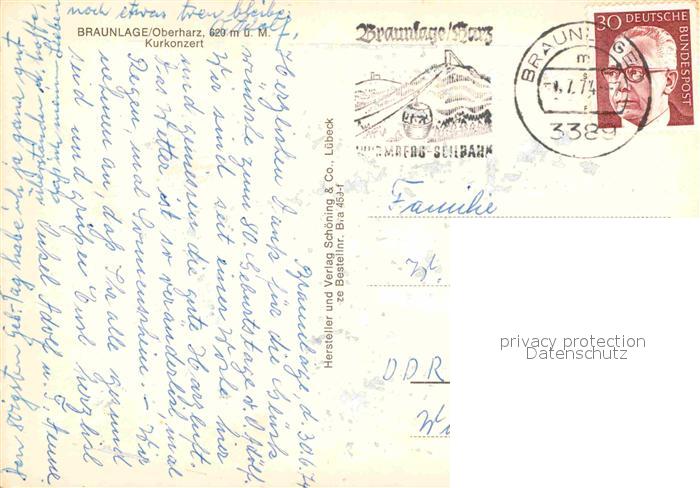 noch etwas treu bleiben!
BRAUNLAGE/Oberharz, 620 m ü. M.
Kurkonzert
Braunlage/Harz
WURMBERG-SEILBAHN
BRAUNLAGE
3389
30 DEUTSCHE
BUNDESPOST
Hersteller und Verlag Schöning & Co., Lübeck
ze Bestellnr. Bra 459-f
Braunlage, d. 30.6.74
Herzlichen Dank für die Glück-
wünsche zum 80. Geburtstage v. O. Adolf.
Wir sind seit einer Woche hier
und genießen die gute Harzluft.
Das Wetter ist so veränderlich, mal
Regen, mal Sonnenschein. – Wir
nehmen an, daß Ihr alle gesund
seid und grüßen Euch herzlich
Onkel Adolf u. T. Anne
Familie
W.
DDR
privacy protection
Datenschutz